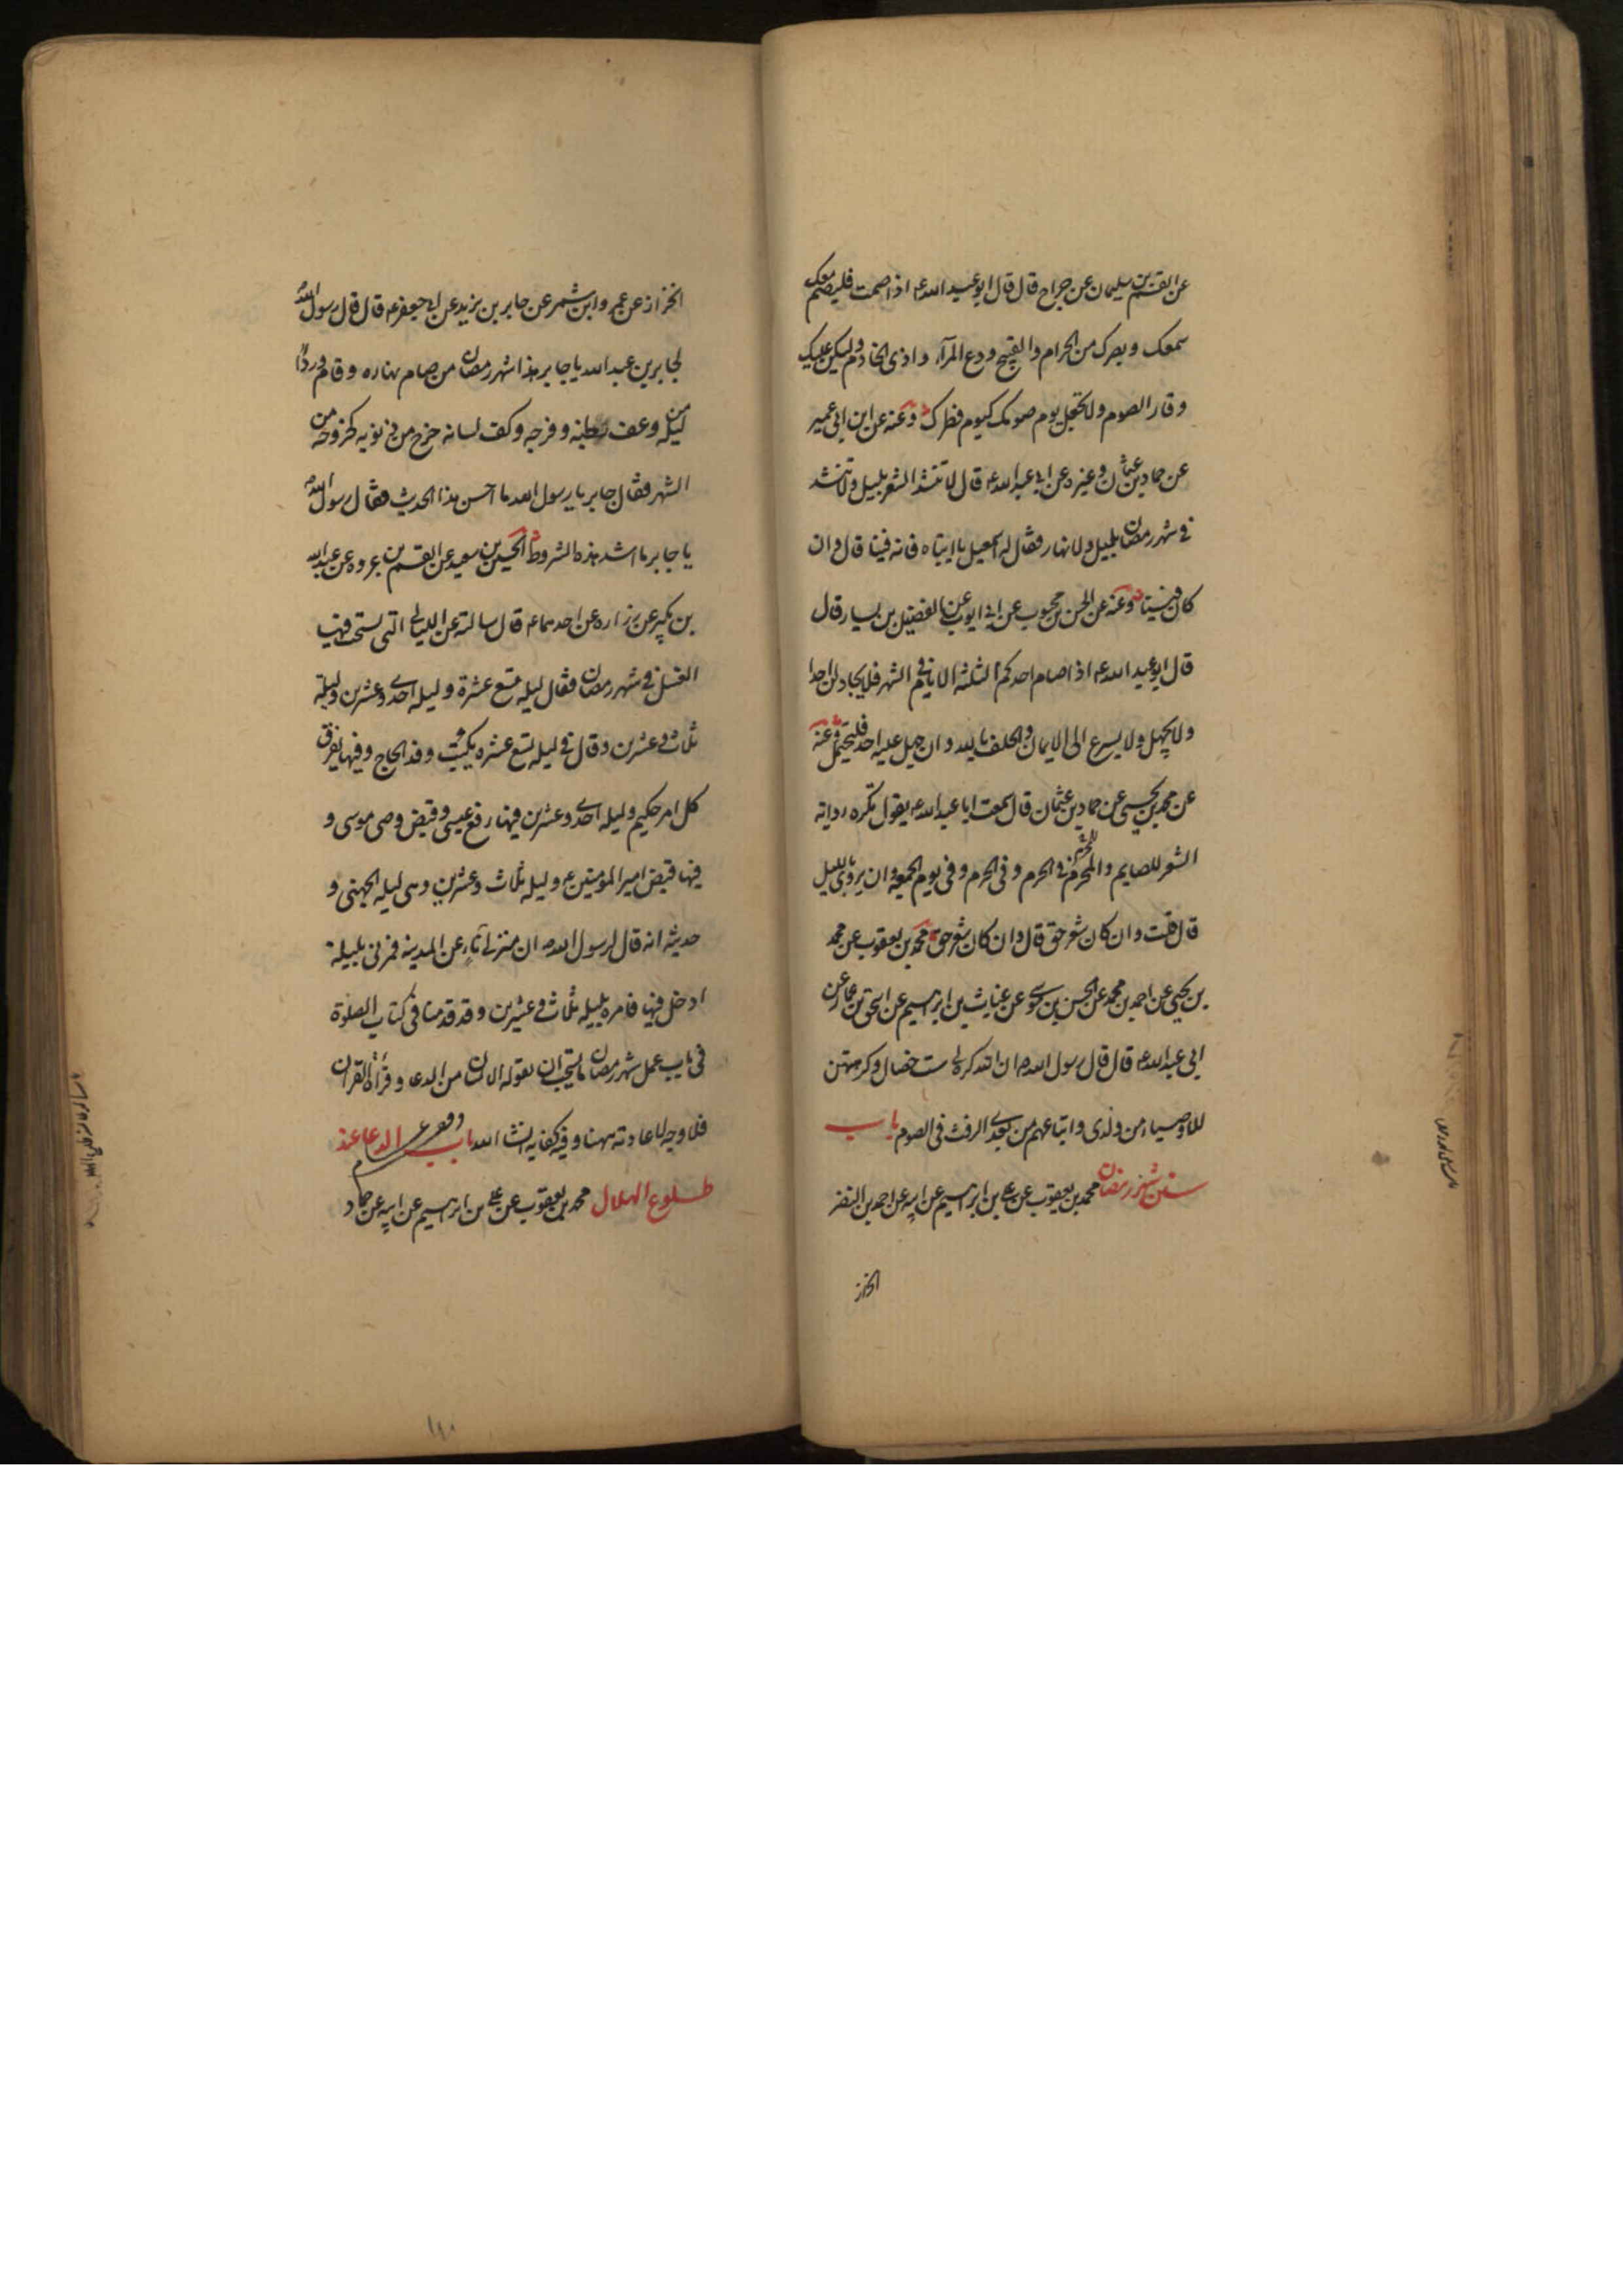 عن القسم بن سليمان عن جراح قال قال ابو عبد الله ع اذا صمت فليصم معك
سمعك وبصرك من الحرام والقبيح ودع المرآء واذى الخادم وليكن عليك
وقار الصوم ولا تجعل يوم صومك كيوم فطرك وعنه عن ابن ابي عمير
عن حماد بن عثمان وغيره عن ابي عبد الله ع قال لا تنشد الشعر بليل ولا تنشد
في شهر رمضان بليل ولا نهار فقال له اسمعيل يا ابتاه فانه فينا قال وان
كان فينا وعنه عن الحسن بن محبوب عن ابي ايوب عن الفضيل بن يسار قال
قال ابو عبد الله ع اذا صام احدكم الثلثة الايام في الشهر فلا يجادلن احدا
ولا يجهل ولا يسرع الى الايمان والحلف بالله وان جهل عليه احد فليتحمل وعنه
عن محمد بن يحيى عن حماد بن عثمان قال سمعت ابا عبد الله ع يقول تكره رواية
الشعر للصايم والمحرم في الحرم وفي الحرم وفي يوم الجمعة وان يروى بالليل
قال قلت وان كان شعر حق قال وان كان شعر حق محمد بن يعقوب عن محمد
بن يحيى عن احمد بن محمد عن الحسن بن موسى عن غياث بن ابراهيم عن اسحق بن عمار عن
ابي عبد الله ع قال قال رسول الله ص ان الله كره لي ست خصال وكرهتهن
للاوصياء من ولدى واتباعهم من بعدى الرفث في الصوم باب
سنن شهر رمضان محمد بن يعقوب عن على بن ابراهيم عن ابيه عن احمد بن النضر
الخزاز
الخزاز عن عمرو ابن شمر عن جابر بن يزيد عن ابي جعفر ع قال قال رسول الله
لجابر بن عبد الله يا جابر هذا شهر رمضان من صام نهاره وقام وردا
من ليله وعف بطنه وفرجه وكف لسانه خرج من ذنوبه كخروجه من
الشهر فقال جابر يا رسول الله ما احسن هذا الحديث فقال رسول الله
يا جابر ما اشد هذه الشروط الحسين بن سعيد عن القسم بن عروه عن عبد الله
بن بكير عن زراره عن احدهما ع قال سالته عن الليالي التى يستحب فيها
الغسل في شهر رمضان فقال ليله تسع عشرة وليله احدى وعشرين وليلة
ثلاث وعشرين وقال في ليله تسع عشره يكتب وفد الحاج وفيها يفرق
كل امر حكيم وليله احدى وعشرين فيها رفع عيسى وقبض وصى موسى و
فيها قبض امير المؤمنين ع وليله ثلاث وعشرين وهى ليله الجهنى و
حديثه انه قال لرسول الله ص ان منزلي نآءٍ عن المدينه فمرني بليلة
ادخل فيها فامره بليله ثلاث وعشرين وقد قدمنا في كتاب الصلوة
في باب عمل شهر رمضان ما يستحب ان يقوله الانسان من الدعا وقرآءة القرآن
فلا وجه لاعادته ههنا وفيه كفايه انشا الله باب الدعا عند
طلوع الهلال محمد بن يعقوب عن على بن ابراهيم عن ابيه عن حماد